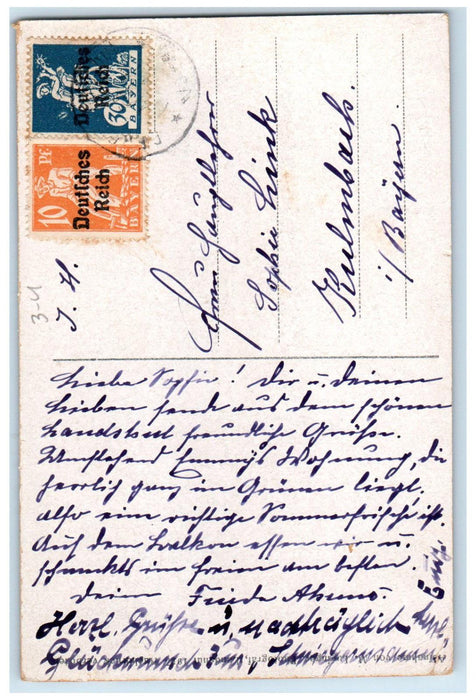 Deutsches
Reich
30 Pf
BAYERN
10 Pf
Deutsches
Reich
BAYERN
Frau Hauptlehrer
Sophie Link
Kulmbach.
i/Bayern.
3-4
Liebe Sophie! Dir u. Deinen
Lieben sende aus dem schönen
Landshut freundliche Grüße.
Umstehend Emmys Wohnung, die
herrlich ganz im Grünen liegt,
also eine richtige Sommerfrische ist.
Auf dem Balkon essen wir u.
schmeckts im freien am besten.
Deine Frieda
Herzl. Grüße u. nachträglich herzl.
Glückwunsch